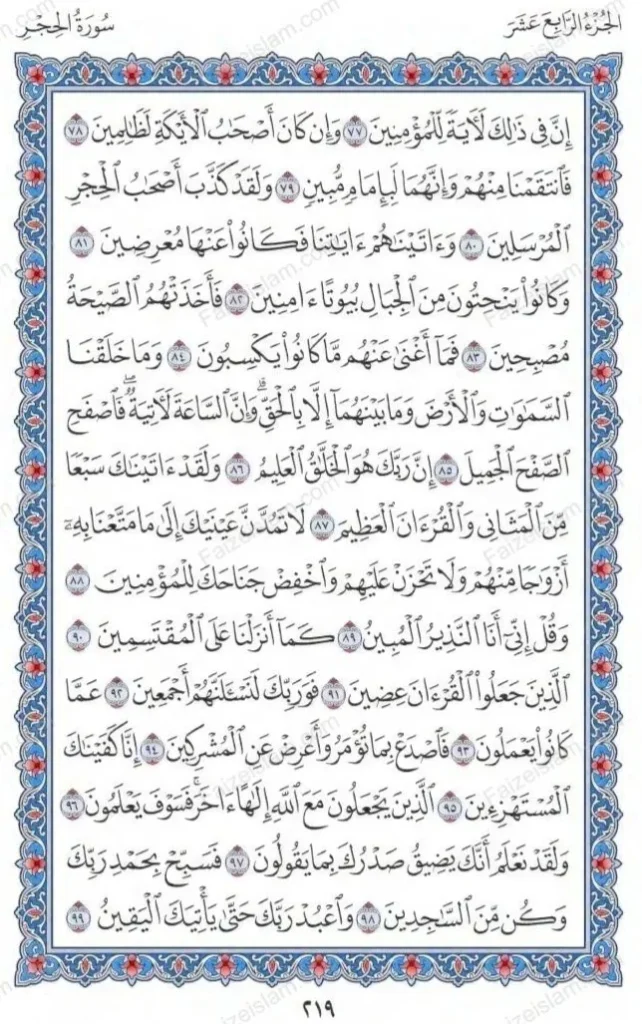 الجُزْءُ الرَّابِعَ عَشَرَ
سُورَةُ الحِجْرِ
إِنَّ فِي ذَٰلِكَ لَآيَةً لِّلْمُؤْمِنِينَ ٧٧ وَإِن كَانَ أَصْحَابُ ٱلْأَيْكَةِ لَظَالِمِينَ ٧٨
فَٱنتَقَمْنَا مِنْهُمْ وَإِنَّهُمَا لَبِإِمَامٍ مُّبِينٍ ٧٩ وَلَقَدْ كَذَّبَ أَصْحَابُ ٱلْحِجْرِ
ٱلْمُرْسَلِينَ ٨٠ وَءَاتَيْنَاهُمْ ءَايَاتِنَا فَكَانُوا۟ عَنْهَا مُعْرِضِينَ ٨١
وَكَانُوا۟ يَنْحِتُونَ مِنَ ٱلْجِبَالِ بُيُوتًا ءَامِنِينَ ٨٢ فَأَخَذَتْهُمُ ٱلصَّيْحَةُ
مُصْبِحِينَ ٨٣ فَمَآ أَغْنَىٰ عَنْهُم مَّا كَانُوا۟ يَكْسِبُونَ ٨٤ وَمَا خَلَقْنَا
ٱلسَّمَٰوَٰتِ وَٱلْأَرْضَ وَمَا بَيْنَهُمَآ إِلَّا بِٱلْحَقِّ ۗ وَإِنَّ ٱلسَّاعَةَ لَآتِيَةٌ ۖ فَٱصْفَحِ
ٱلصَّفْحَ ٱلْجَمِيلَ ٨٥ إِنَّ رَبَّكَ هُوَ ٱلْخَلَّٰقُ ٱلْعَلِيمُ ٨٦ وَلَقَدْ ءَاتَيْنَاكَ سَبْعًا
مِّنَ ٱلْمَثَانِي وَٱلْقُرْءَانَ ٱلْعَظِيمَ ٨٧ لَا تَمُدَّنَّ عَيْنَيْكَ إِلَىٰ مَا مَتَّعْنَا بِهِۦٓ
أَزْوَٰجًا مِّنْهُمْ وَلَا تَحْزَنْ عَلَيْهِمْ وَٱخْفِضْ جَنَاحَكَ لِلْمُؤْمِنِينَ ٨٨
وَقُلْ إِنِّىٓ أَنَا ٱلنَّذِيرُ ٱلْمُبِينُ ٨٩ كَمَآ أَنزَلْنَا عَلَى ٱلْمُقْتَسِمِينَ ٩٠
ٱلَّذِينَ جَعَلُوا۟ ٱلْقُرْءَانَ عِضِينَ ٩١ فَوَرَبِّكَ لَنَسْـَٔلَنَّهُمْ أَجْمَعِينَ ٩٢ عَمَّا
كَانُوا۟ يَعْمَلُونَ ٩٣ فَٱصْدَعْ بِمَا تُؤْمَرُ وَأَعْرِضْ عَنِ ٱلْمُشْرِكِينَ ٩٤ إِنَّا كَفَيْنَاكَ
ٱلْمُسْتَهْزِءِينَ ٩٥ ٱلَّذِينَ يَجْعَلُونَ مَعَ ٱللَّهِ إِلَٰهًا ءَاخَرَ ۚ فَسَوْفَ يَعْلَمُونَ ٩٦
وَلَقَدْ نَعْلَمُ أَنَّكَ يَضِيقُ صَدْرُكَ بِمَا يَقُولُونَ ٩٧ فَسَبِّحْ بِحَمْدِ رَبِّكَ
وَكُن مِّنَ ٱلسَّٰجِدِينَ ٩٨ وَٱعْبُدْ رَبَّكَ حَتَّىٰ يَأْتِيَكَ ٱلْيَقِينُ ٩٩
٢١٩
Faizeislam.com